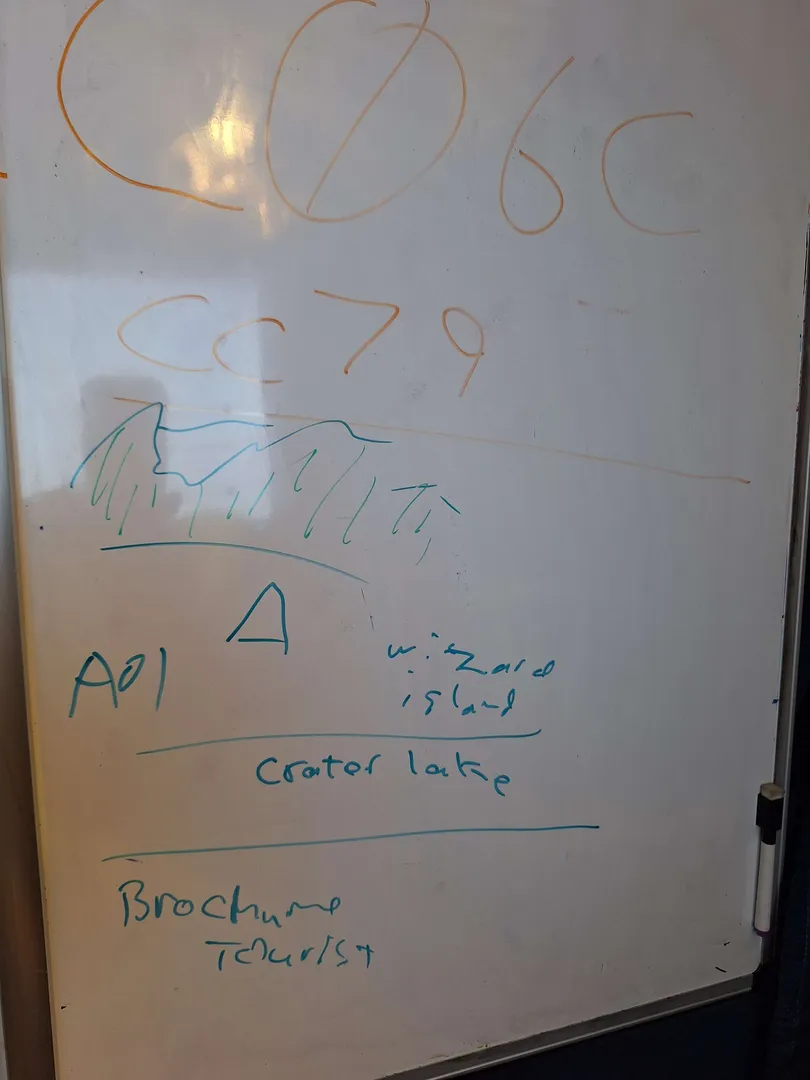 CØ6C
CC79
A01
wizard
island
crater lake
Brochure
Tourist